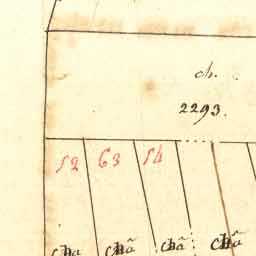 ch.
2293.
52 63 54
Cha Châ Châ Châ